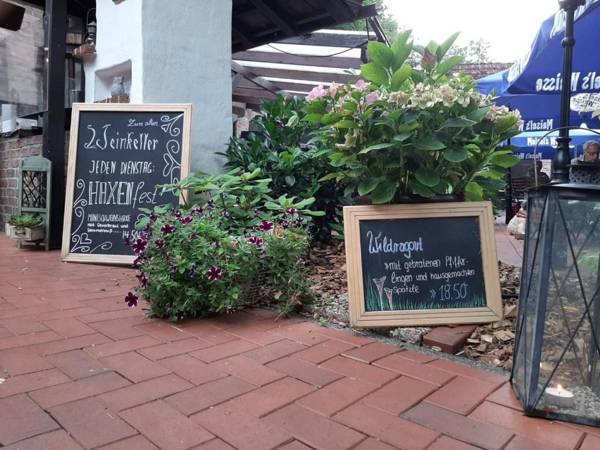 Zum alten
Weinkeller
JEDEN DIENSTAG:
HAXENfest
14.50
Wildragout
»mit gebratenen Pfiffer-
lingen und hausgemachten
Spätzle »18.50
Maisel's Weisse
Maisel's